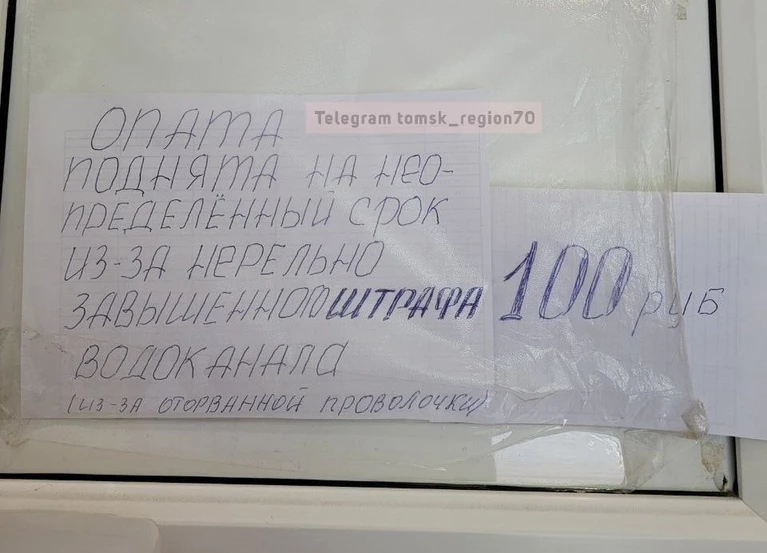 Telegram tomsk_region70
ОПАТА
ПОДНЯТА НА НЕО-
ПРЕДЕЛЁННЫЙ СРОК
ИЗ-ЗА НЕРЕЛЬНО
ЗАВЫШЕННОГО ШТРАФА
ВОДОКАНАЛА
(ИЗ-ЗА ОТОРВАННОЙ ПРОВОЛОЧКИ)
100 РУБ